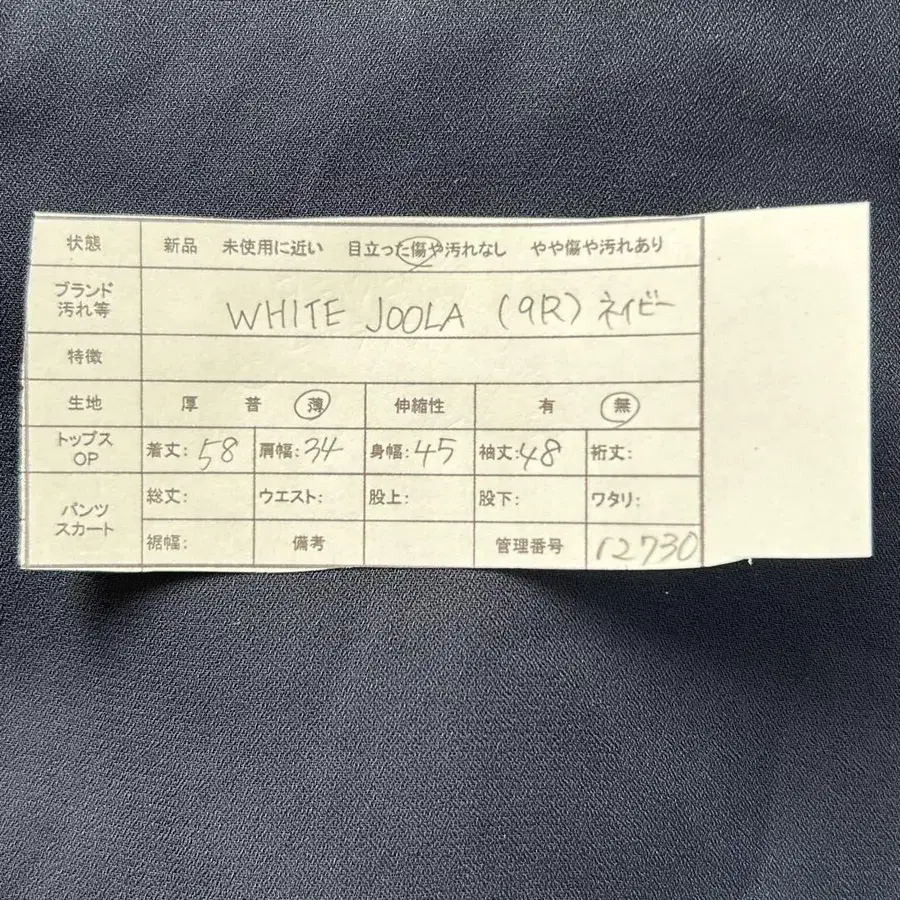 状態 新品 未使用に近い 目立った傷や汚れなし やや傷や汚れあり
ブランド
汚れ等
WHITE JOOLA (9R) ネイビー
特徴
生地 厚 普 薄 伸縮性 有 無
トップス
OP
着丈: 58 肩幅: 34 身幅: 45 袖丈: 48 裄丈:
パンツ
スカート
総丈: ウエスト: 股上: 股下: ワタリ:
裾幅: 備考 管理番号 12730